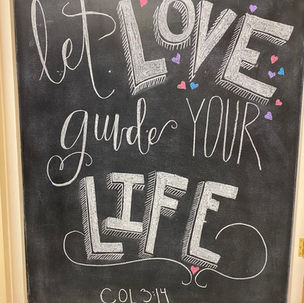 let LOVE
guide YOUR
LIFE
COL 3:14